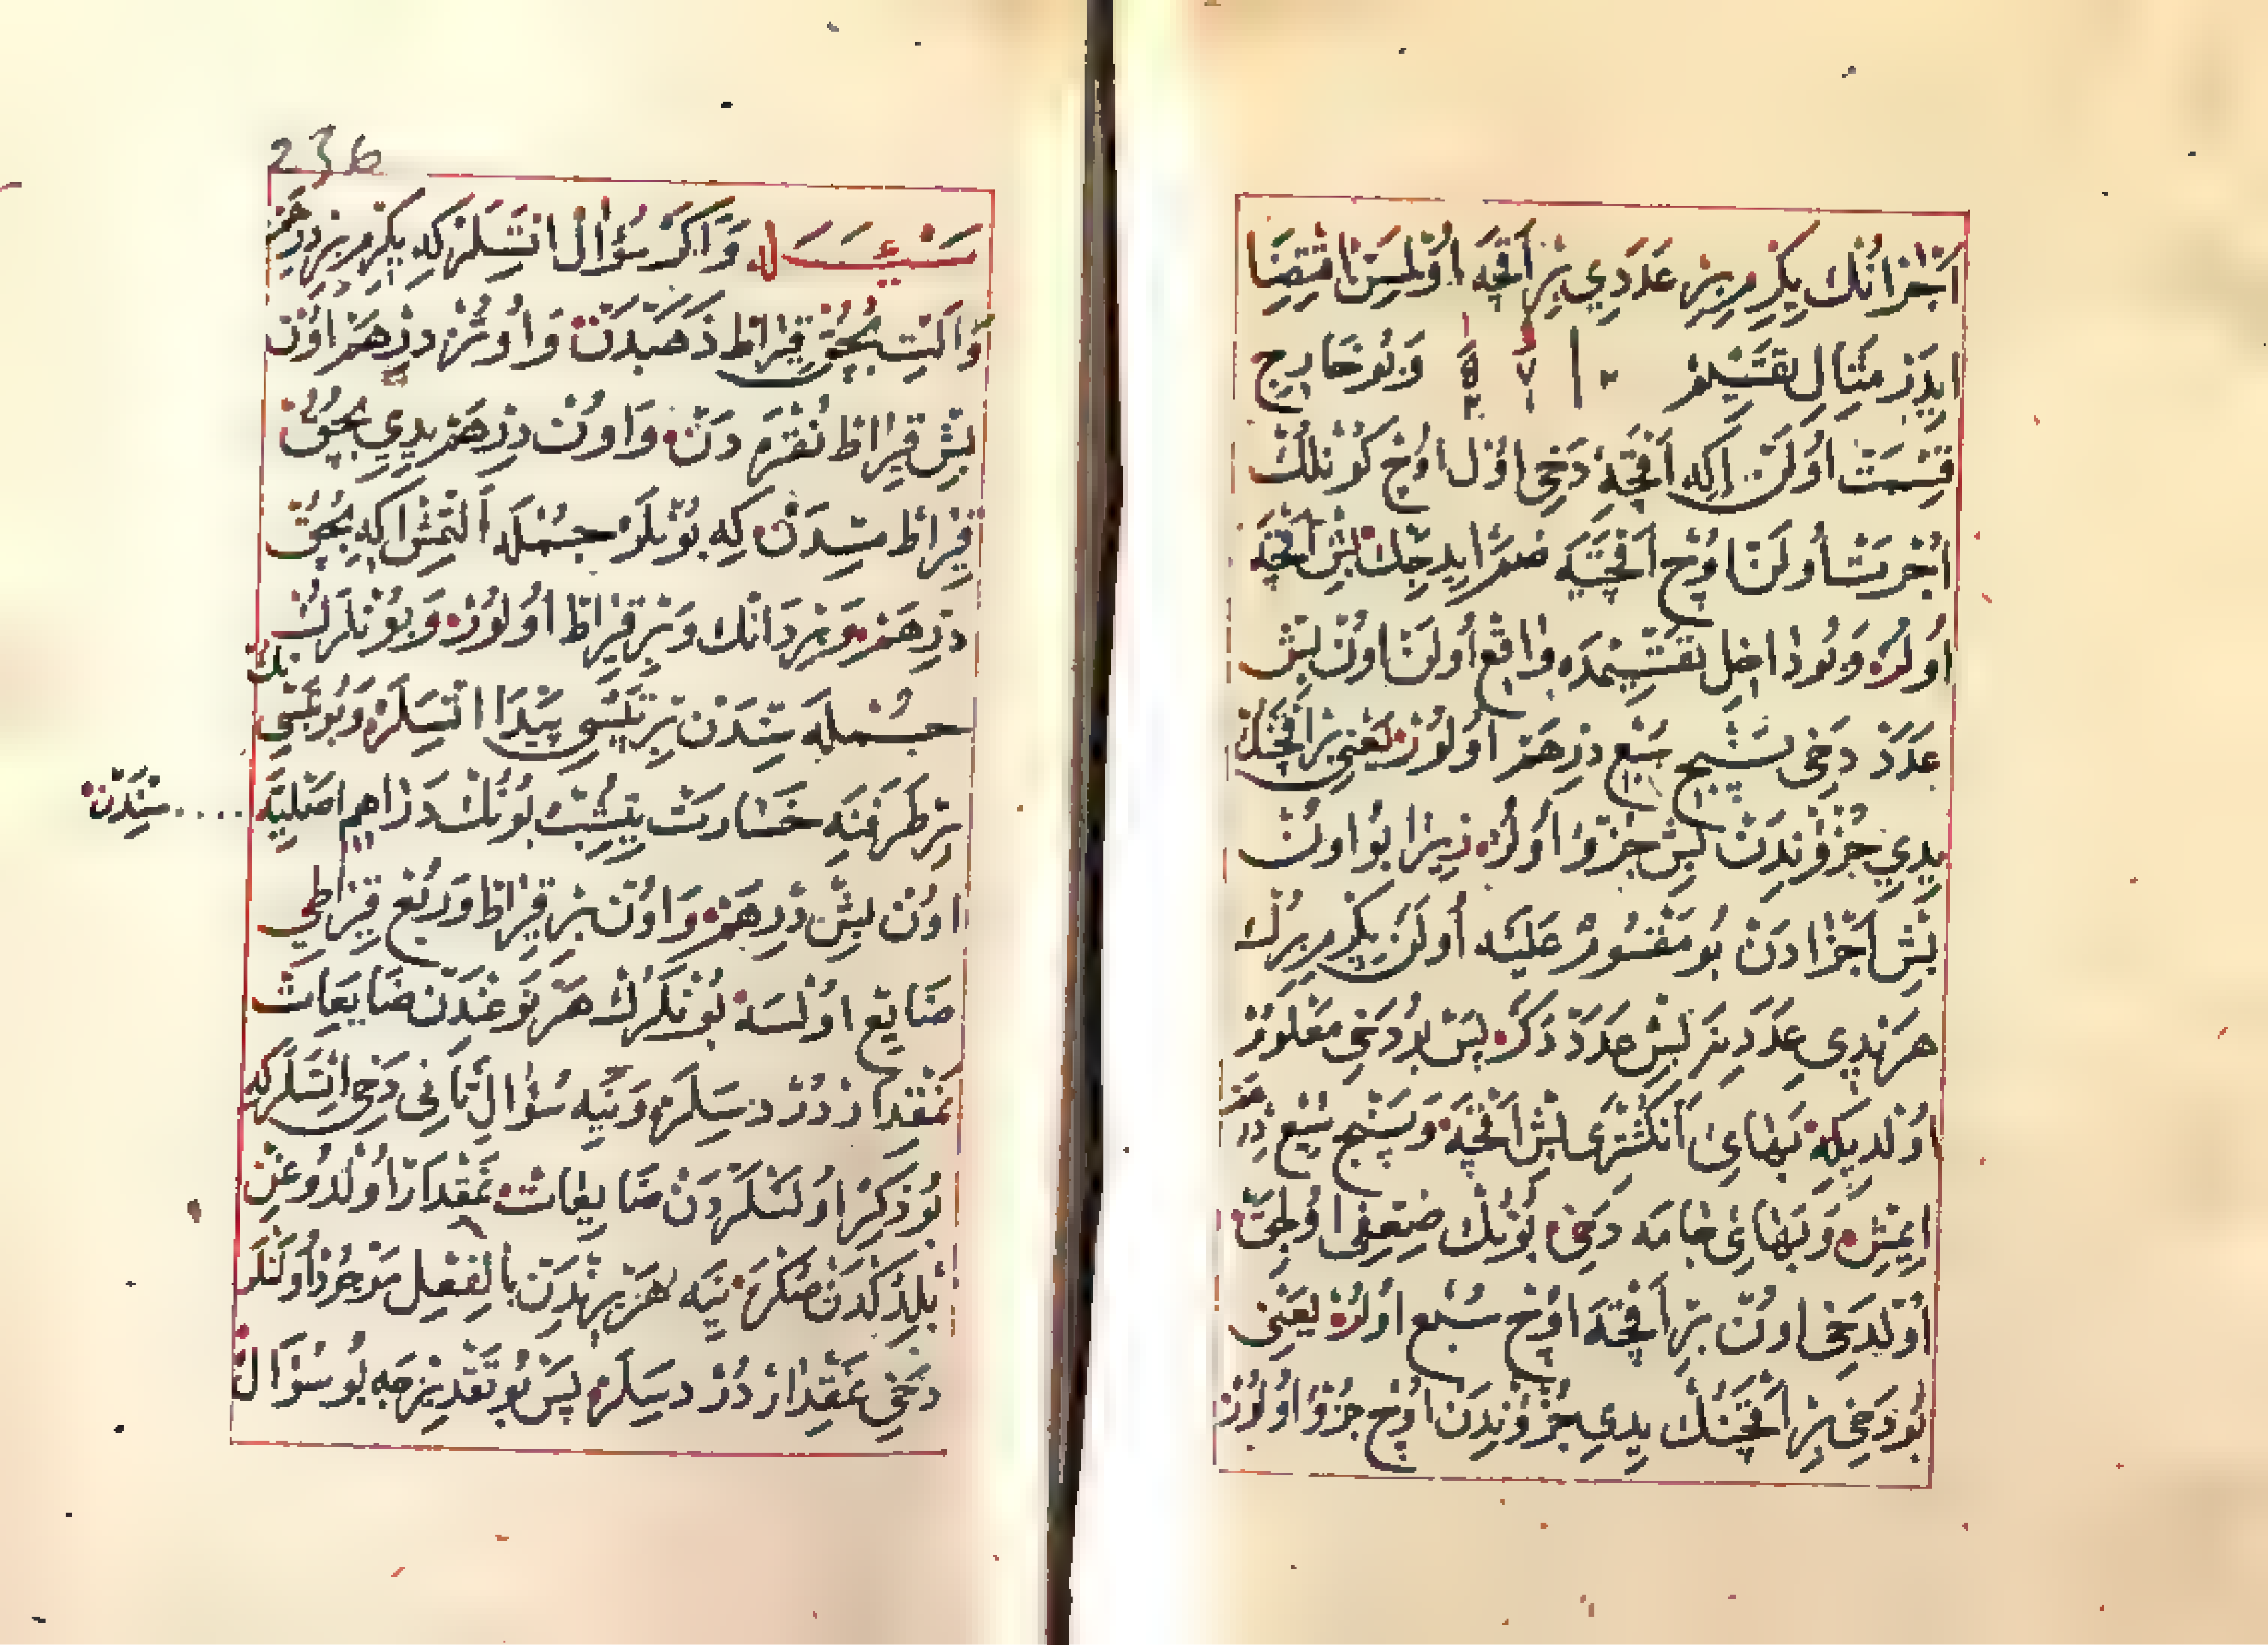 اَجْزَانُكْ يِكِرْمِ بِرْ عَدَدِي بِرْ اَقْچَه اُولْمَسِنْ اقْتِضَا
ايدَرْ مِثَالِ تَقْسِيمْ وَبُو خَارِجِ
قِسْمَتْ اُولَنْ اِكِه اَقْچَهْ دَخِي اوْلْ اوُچ كُونْلُكْ
اُجْرَتْ اُولَنْ اوُچْ اَقْچَيَه ضَمّ ايدِجِكْ بَشْ اَقْچَه
اُولُرْ وَبُو دَاخِلِ تَقْسِيمْدَه وَاقِعْ اُولَنْ اوُنْ بَشْ
عَدَدْ دَخِي پَنْجِ سُبْعِ دِرْهَمْ اُولُورْ يَعْنِي بِرْ اَقْچَنُكْ
يِدِي جُزْؤُنْدِنْ بَشْ جُزْؤُ اُولُرْ زِيرَا بُو اوُنْ
بَشْ اَجْزَادَنْ بُو مَقْسُومْ عَلَيْه اُولَنْ يِكِرْمِ بِرُكْ
هَرْ يِدِي عَدَدِينَه بَشْ عَدَدْ دَكَرْ پَسْ بُو دَخِي مَعْلُومْ
اوُلْدِيكِه بَهَايِ اَنْكُشْتَرِي بَشْ اَقْچَه وَپَنْجِ سُبْعِ دِرْهَمْ
ايمِشْ وَبَهَايِ جَامَه دَخِي بُونُكْ ضِعْفِي اُولِيجَقْ
اُولْدَخِي اوُنْ بِرْ اَقْچَه اوُچْ سُبْعِ اُولُرْ يَعْنِي
بُو دَخِي بِرْ اَقْچَنُكْ يِدِي جُزْؤُنْدِنْ اوُچْ جُزْؤُ اُولُورْ
236
مَسْئَلَه وَاكَرْ سُؤَالْ اتْسَلَرْ كِه يِكِرْمِ بِرْ دِرْهَمْ
وَالْتِ بُچُقْ قِيرَاطْ ذَهَبْدَنْ وَاوُتُزْ دِرْهَمْ اوُنْ
بَشْ قِيرَاطْ نُقْرَه دَنْ وَاوُنْ دِرْهَمْ يِدِي بُچُقْ
قِيرَاطْ مِسْدَنْ كِه بُونْلَرْ جُمْلَه اَلْتْمِشْ اِكِه بُچُقْ
دِرْهَمْ وَبِرْ دَانْكْ وَبِرْ قِيرَاطْ اُولُورْ وَبُونْلَرُكْ
جُمْلَه سِنْدَنْ بِرْ تَپْسِي پَيْدَا اتْسَلَرْ وَبُو تَپْسِي
بِرْ طَرَفْنَه خَسَارَتْ يِتِشِبْ بُونُكْ دَرَاهِمِ اصْلِيَّه
سِنْدَنْ
اوُنْ بَشْ دِرْهَمْ وَاوُنْ بِرْ قِيرَاطْ وَرُبْعِ قِيرَاطِي
ضَايِعْ اوُلْسَه بُونْلَرُكْ هَرْ نَوْعِنْدَنْ ضَايِعَاتْ
نَمِقْدَارْدُرْ دِسَلَرْ وَيِنَه سُؤَالِ ثَانِي دَخِي اتْسَلَرْ كِه
بُو ذِكِرْ اُولَنْلَرْدَنْ ضَايِعَاتْ نَمِقْدَارْ اُولْدُوغِنْ
بِلْدِكْدَنْ صَكْرَه يِنَه هَرْ بِرِنْدِنْ بِالْفِعِلْ مَوْجُودْ اُولَنْلَرْ
دَخِي نَمِقْدَارْدُرْ دِسَلَرْ پَسْ بُو تَقْدِيرْجَه بُو سُؤَالُكْ